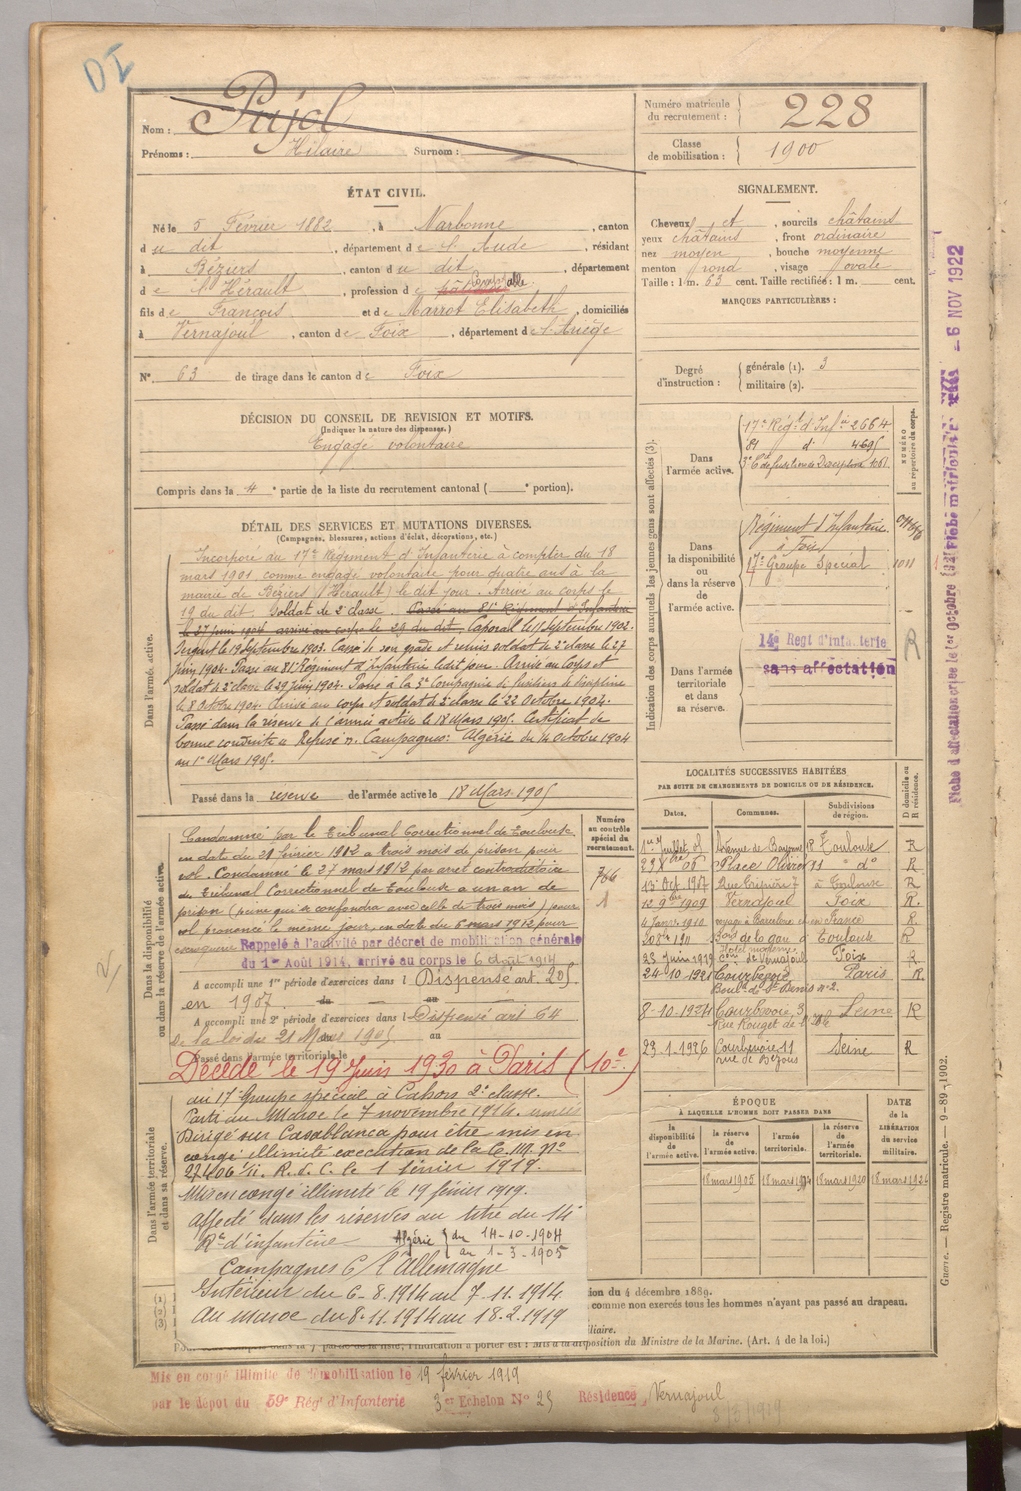 DI
Nom : Pujol
Prénoms : Hilaire Surnom :
Numéro matricule du recrutement : 228
Classe de mobilisation : 1900
ÉTAT CIVIL.
Né le 5 Février 1882, à Narbonne, canton
du dit, département de l'Aude, résidant
à Béziers, canton du dit, département
de l'Hérault, profession de
fils de François et de Marrot Elisabeth, domiciliés
à Vernajoul, canton de Foix, département de l'Ariège
N° 63 de tirage dans le canton de Foix
SIGNALEMENT.
Cheveux et, sourcils châtains
yeux châtains, front ordinaire
nez moyen, bouche moyenne
menton rond, visage ovale
Taille : 1 m. 63 cent. Taille rectifiée : 1 m. cent.
MARQUES PARTICULIÈRES :
Degré d'instruction : générale (1). 3
militaire (2).
DÉCISION DU CONSEIL DE REVISION ET MOTIFS.
(Indiquer la nature des dispenses.)
Engagé volontaire
Compris dans la 4e partie de la liste du recrutement cantonal ( e portion).
DÉTAIL DES SERVICES ET MUTATIONS DIVERSES.
(Campagnes, blessures, actions d'éclat, décorations, etc.)
Dans l'armée active.
Incorporé au 17e Régiment d'Infanterie à compter du 18
mars 1901 comme engagé volontaire pour quatre ans à la
mairie de Béziers (Hérault) le dit jour. Arrivé au corps le
19 du dit. Soldat de 2e classe. Passé au 81e Régiment d'Infanterie
le 27 juin 1904 arrivé au corps le 29 du dit. Caporal le 11 Septembre 1902.
Sergent le 19 Septembre 1903. Cassé de son grade et remis soldat de 2e classe le 27
juin 1904. Passé au 81e Régiment d'infanterie le dit jour. Arrivé au Corps et
soldat de 2e classe le 29 juin 1904. Passé à la 3e Compagnie de fusiliers de discipline
le 8 Octobre 1904. Arrivé au corps et soldat de 2e classe le 22 Octobre 1904.
Passé dans la réserve de l'armée active le 18 Mars 1905. Certificat de
bonne conduite « Refusé ». Campagnes : Algérie du 14 Octobre 1904
au 1er Mars 1905.
Passé dans la réserve de l'armée active le 18 Mars 1905
Indication des corps auxquels les jeunes gens sont affectés (3).
NUMÉRO au répertoire du corps.
Dans l'armée active.
17e Régt d'Infie 2664
81 d° 4695
3e Cie de fusiliers de Discipline 1081
Dans la disponibilité ou dans la réserve de l'armée active.
Régiment d'Infanterie
à Foix
17e Groupe Spécial 1011
Dans l'armée territoriale et dans sa réserve.
14e Regt d'infanterie
sans affectation
R
Fiche d'affectation créée le 1er octobre
Fiche matricule
- 6 NOV 1922
Dans la disponibilité ou dans la réserve de l'armée active.
Numéro au contrôle spécial du recrutement.
766
1
Condamné par le Tribunal Correctionnel de Toulouse
en date du 21 février 1912 à trois mois de prison pour
vol. Condamné le 27 mars 1912 par arrêt contradictoire
du Tribunal Correctionnel de Toulouse à un an de
prison (peine qui se confondra avec celle de trois mois) pour
vol prononcé le même jour, en date du 6 mars 1912 pour
escroquerie
Rappelé à l'activité par décret de mobilisation générale
du 1er Août 1914, arrivé au corps le 6 août 1914
A accompli une 1re période d'exercices dans l Dispensé art. 205
en 1907 du au
A accompli une 2e période d'exercices dans l Dispensé art 64
de la loi du 21 Mars 1905 au
Passé dans l'armée territoriale le
Décédé le 19 Juin 1930 à Paris (10e)
LOCALITÉS SUCCESSIVES HABITÉES
PAR SUITE DE CHANGEMENTS DE DOMICILE OU DE RÉSIDENCE.
D domicile ou R résidence.
Dates. Communes. Subdivisions de région.
1er Juillet 05 Avenue de Bayonne 18 Toulouse R
Place Olivier 11 d° R
13 Oct 1907 Rue Tripière 7 à Toulouse R
12 9bre 1909 Vernajoul Foix R
4 Janv. 1910 voyage à Barcelone et en France R
Bard de la gare à Toulouse R
23 Juin 1919 Cne de Vernajoul Foix R
24-10-1921 Courbevoie, Paris R
Boulrd de St Denis n° 2.
8-10-1924 Courbevoie, 3 Seine R
Rue Rouget de l'Isle
23-1-1926 Courbevoie 11 Seine R
rue de Bezons
Dans l'armée territoriale et dans sa réserve.
au 17e Groupe spécial à Cahors 2e classe.
Parti au Maroc le 7 novembre 1914.
Dirigé sur Casablanca pour être mis en
congé illimité exécution de la C. M. N°
27406 1/11. R. d. C. le 1 février 1919.
Mis en congé illimité le 19 février 1919.
Affecté dans les réserves au titre du 14e
Rt d'infanterie
Algérie { du 14-10-1904
au 1-3-1905
Campagnes C/ l'Allemagne
Intérieur du 6-8-1914 au 7.11.1914
Au maroc du 8.11.1914 au 18.2.1919
ÉPOQUE
À LAQUELLE L'HOMME DOIT PASSER DANS
DATE de la LIBÉRATION du service militaire.
la disponibilité de l'armée active.
la réserve de l'armée active.
l'armée territoriale.
la réserve de l'armée territoriale.
18 mars 1905
18 mars 1920
18 mars 1926
(1)
(2)
(3)
ion du 4 décembre 1889.
comme non exercés tous les hommes n'ayant pas passé au drapeau.
iliaire.
l'indication à porter est : Mis à la disposition du Ministre de la Marine. (Art. 4 de la loi.)
Guerre. — Registre matricule. — 9-89-1902.
Mis en congé illimité de démobilisation le 19 février 1919
par le dépot du 59e Régt d'Infanterie 3e Echelon N° 25 Résidence Vernajoul